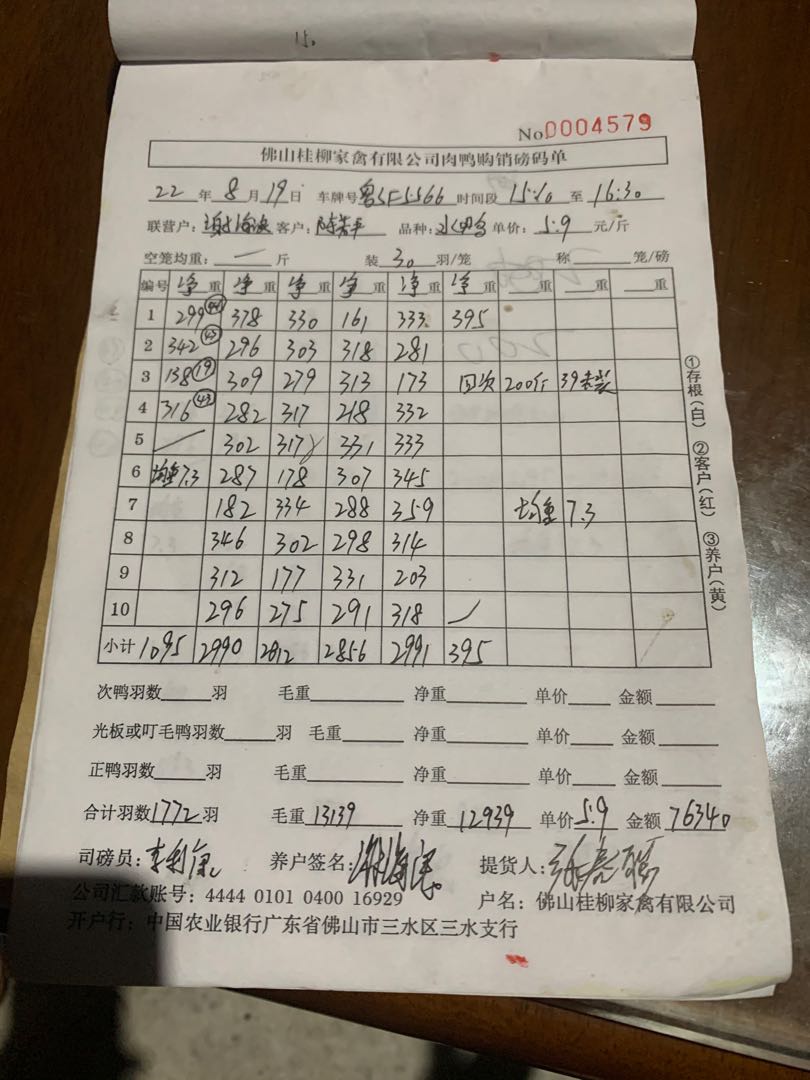 15.
No 0004579
佛山桂柳家禽有限公司肉鸭购销磅码单
22 年 8 月 19 日 车牌号 粤 F5566 时间段 15:10 至 16:30
联营户: 谢海 客户: 陈 平 品种: 水鸭 单价: 5.9 元/斤
空笼均重: 一 斤 装 30 羽/笼 称 笼/磅
编号 净重 净重 净重 净重 净重 净重 重 重 重
1 299 378 330 161 333 395
2 342 (45) 296 303 318 281
3 138 (19) 309 279 313 173 回次 200斤 39
4 316 (43) 282 317 218 332
5 302 317 331 333
6 均重7.3 287 178 307 345
7 182 334 288 359 均重 7.3
8 346 302 298 314
9 312 177 331 203
10 296 275 291 318
小计 1095 2990 2812 2856 2991 395
①存根(白) ②客户(红) ③养户(黄)
次鸭羽数 羽 毛重 净重 单价 金额
光板或叮毛鸭羽数 羽 毛重 净重 单价 金额
正鸭羽数 羽 毛重 净重 单价 金额
合计羽数 1772 羽 毛重 13139 净重 12939 单价 5.9 金额 76340
司磅员: 李 养户签名: 谢海 提货人:
公司汇款账号: 4444 0101 0400 16929 户名: 佛山桂柳家禽有限公司
开户行: 中国农业银行广东省佛山市三水区三水支行